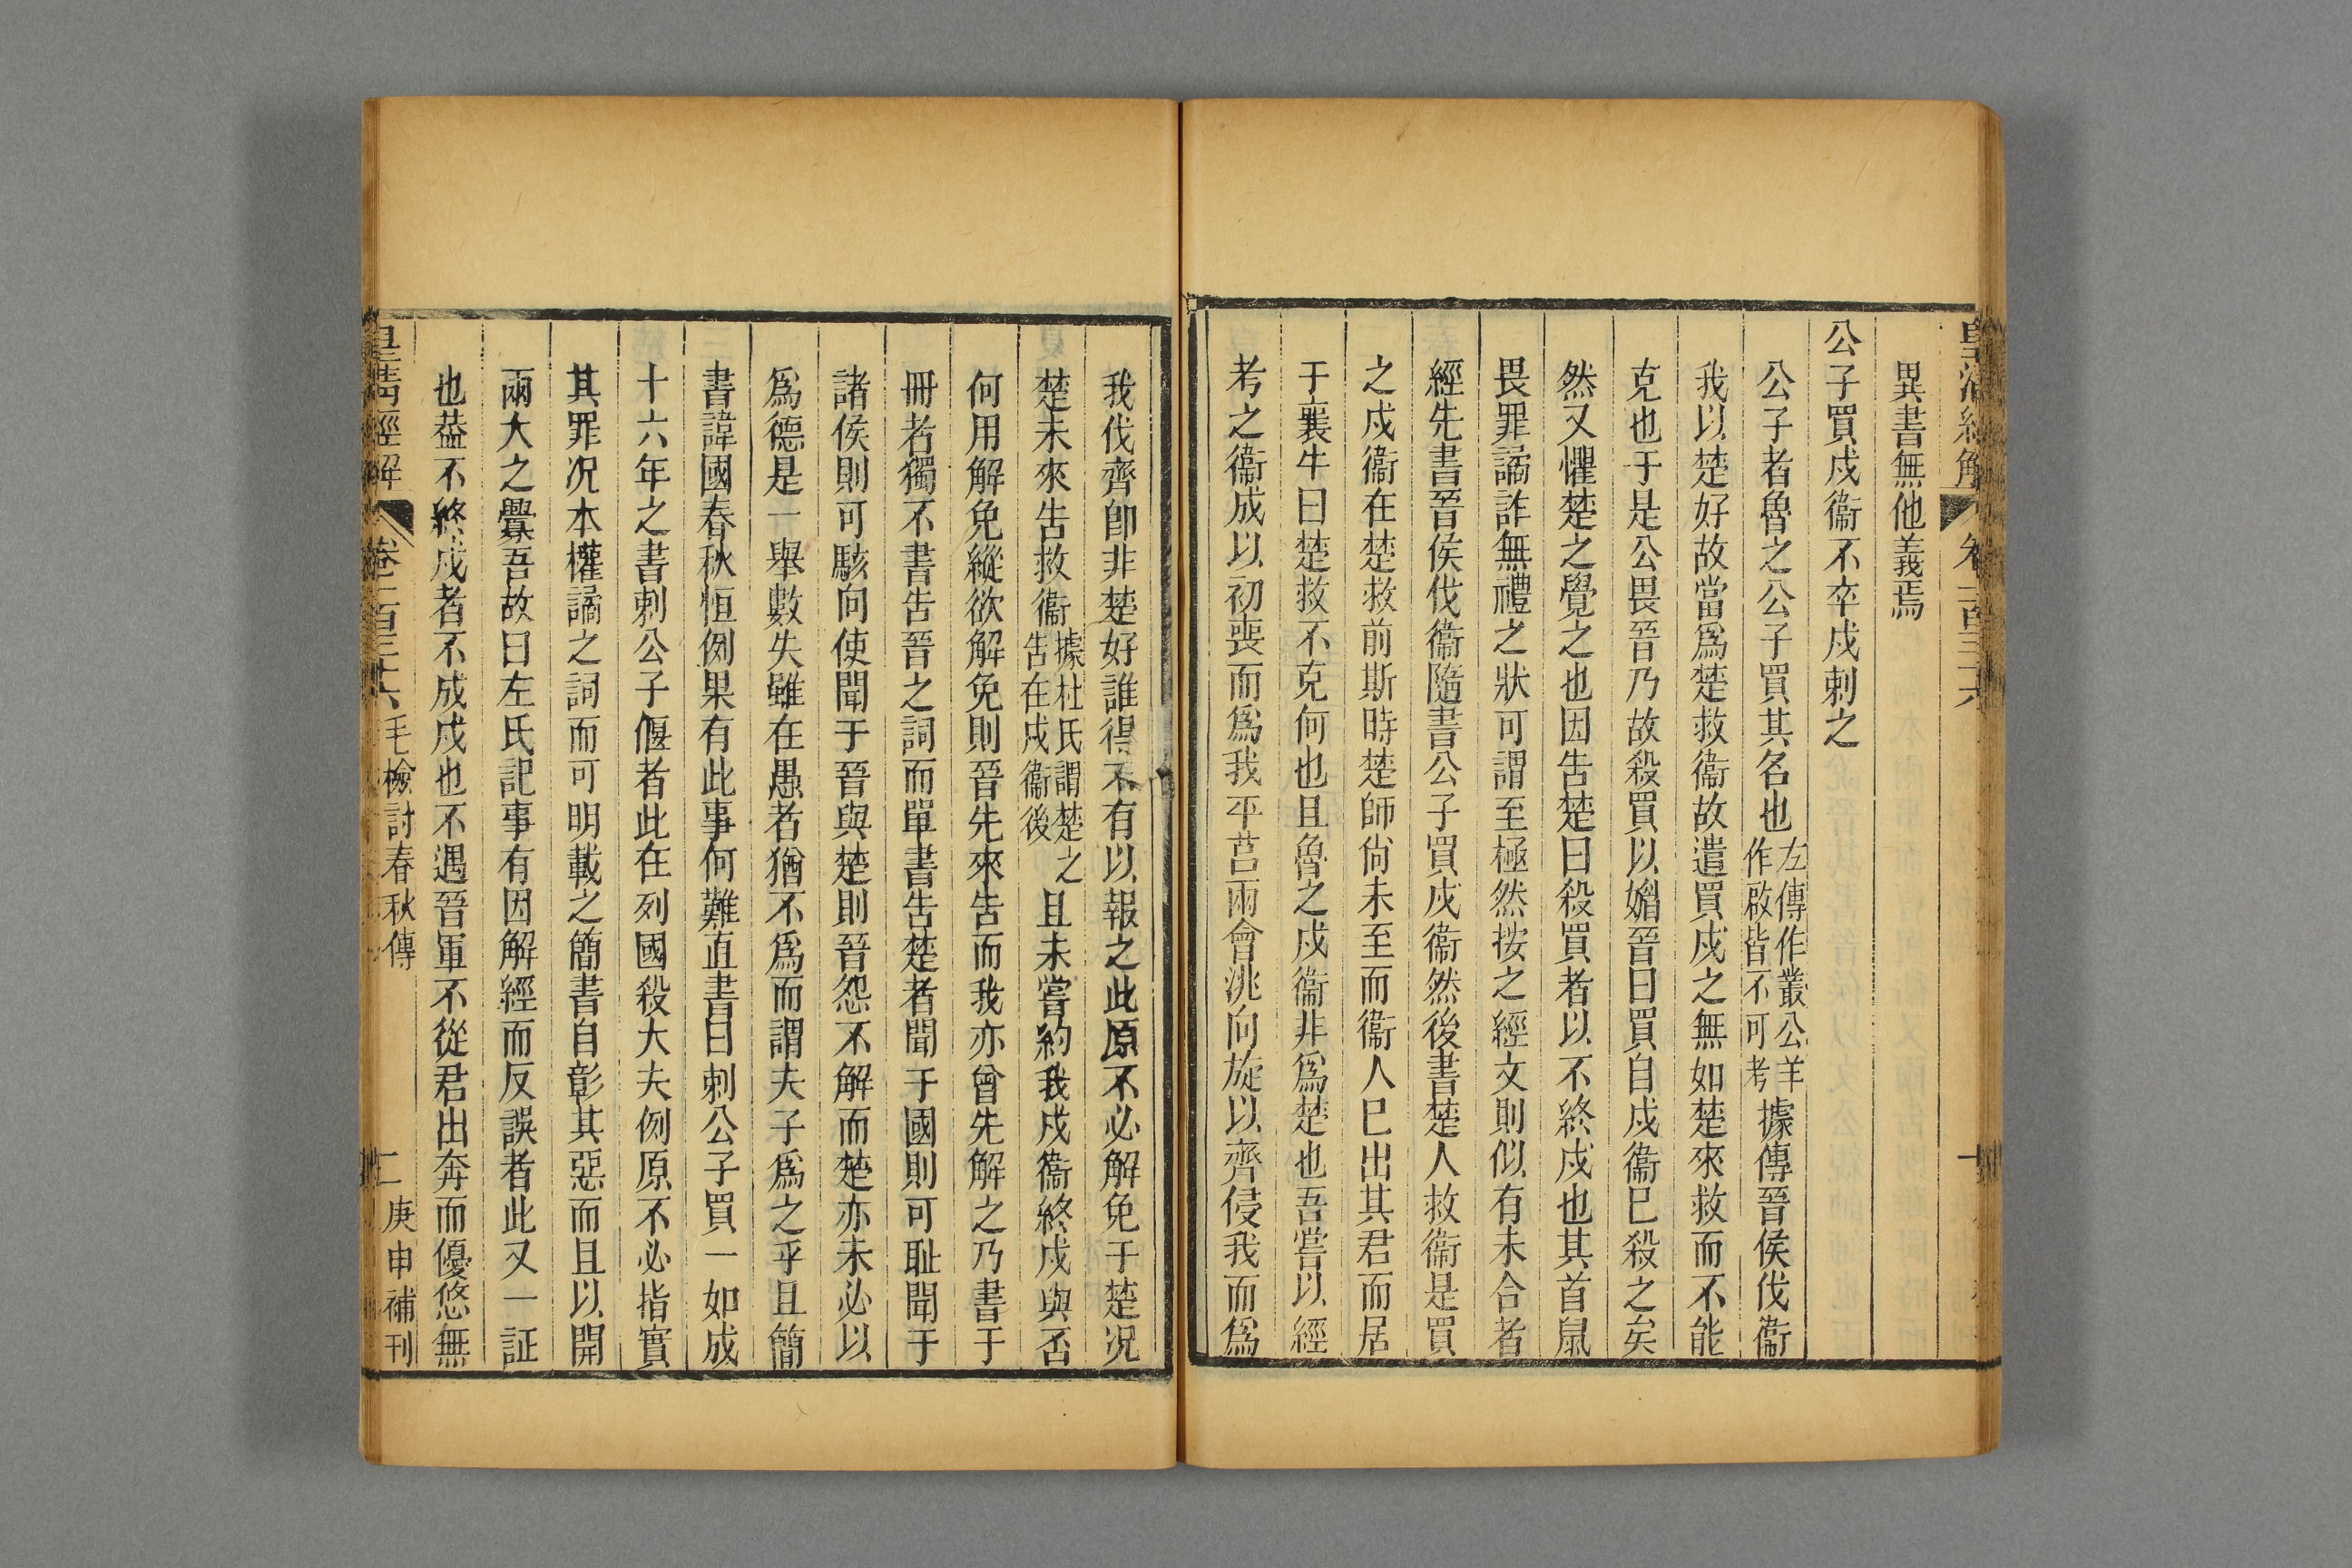 異書無他義焉
公子買戍衞不卒戍刺之
公子者魯之公子買其名也左傳作叢公羊作啟皆不可考據傳晉侯伐衞
我以楚好故當爲楚救衞故遣買戍之無如楚來救而不能
克也于是公畏晉乃故殺買以媚晉曰買自戍衞巳殺之矣
然又懼楚之覺之也因告楚曰殺買者以不終戍也其首鼠
畏罪譎詐無禮之狀可謂至極然按之經文則似有未合者
經先書晉侯伐衞隨書公子買戍衞然後書楚人救衞是買
之戍衞在楚救前斯時楚師尙未至而衞人巳出其君而居
于襄牛曰楚救不克何也且魯之戍衞非爲楚也吾嘗以經
考之衞成以初喪而爲我平莒兩會洮向旋以齊侵我而爲
我伐齊卽非楚好誰得不有以報之此原不必解免于楚况
楚未來告救衞據杜氏謂楚之告在戍衞後且未嘗約我戍衞終戍與否
何用解免縱欲解免則晉先來告而我亦曾先解之乃書于
冊者獨不書告晉之詞而單書告楚者聞于國則可耻聞于
諸侯則可駭向使聞于晉與楚則晉怨不解而楚亦未必以
爲德是一舉數失雖在愚者猶不爲而謂夫子爲之乎且簡
書諱國春秋恒例果有此事何難直書曰刺公子買一如成
十六年之書刺公子偃者此在列國殺大夫例原不必指實
其罪况本權譎之詞而可明載之簡書自彰其惡而且以開
兩大之釁吾故曰左氏記事有因解經而反誤者此又一証
也葢不終戍者不成戍也不遇晉軍不從君出奔而優悠無
皇清經解
卷一百三十六
毛檢討春秋傳
二
庚申補刊